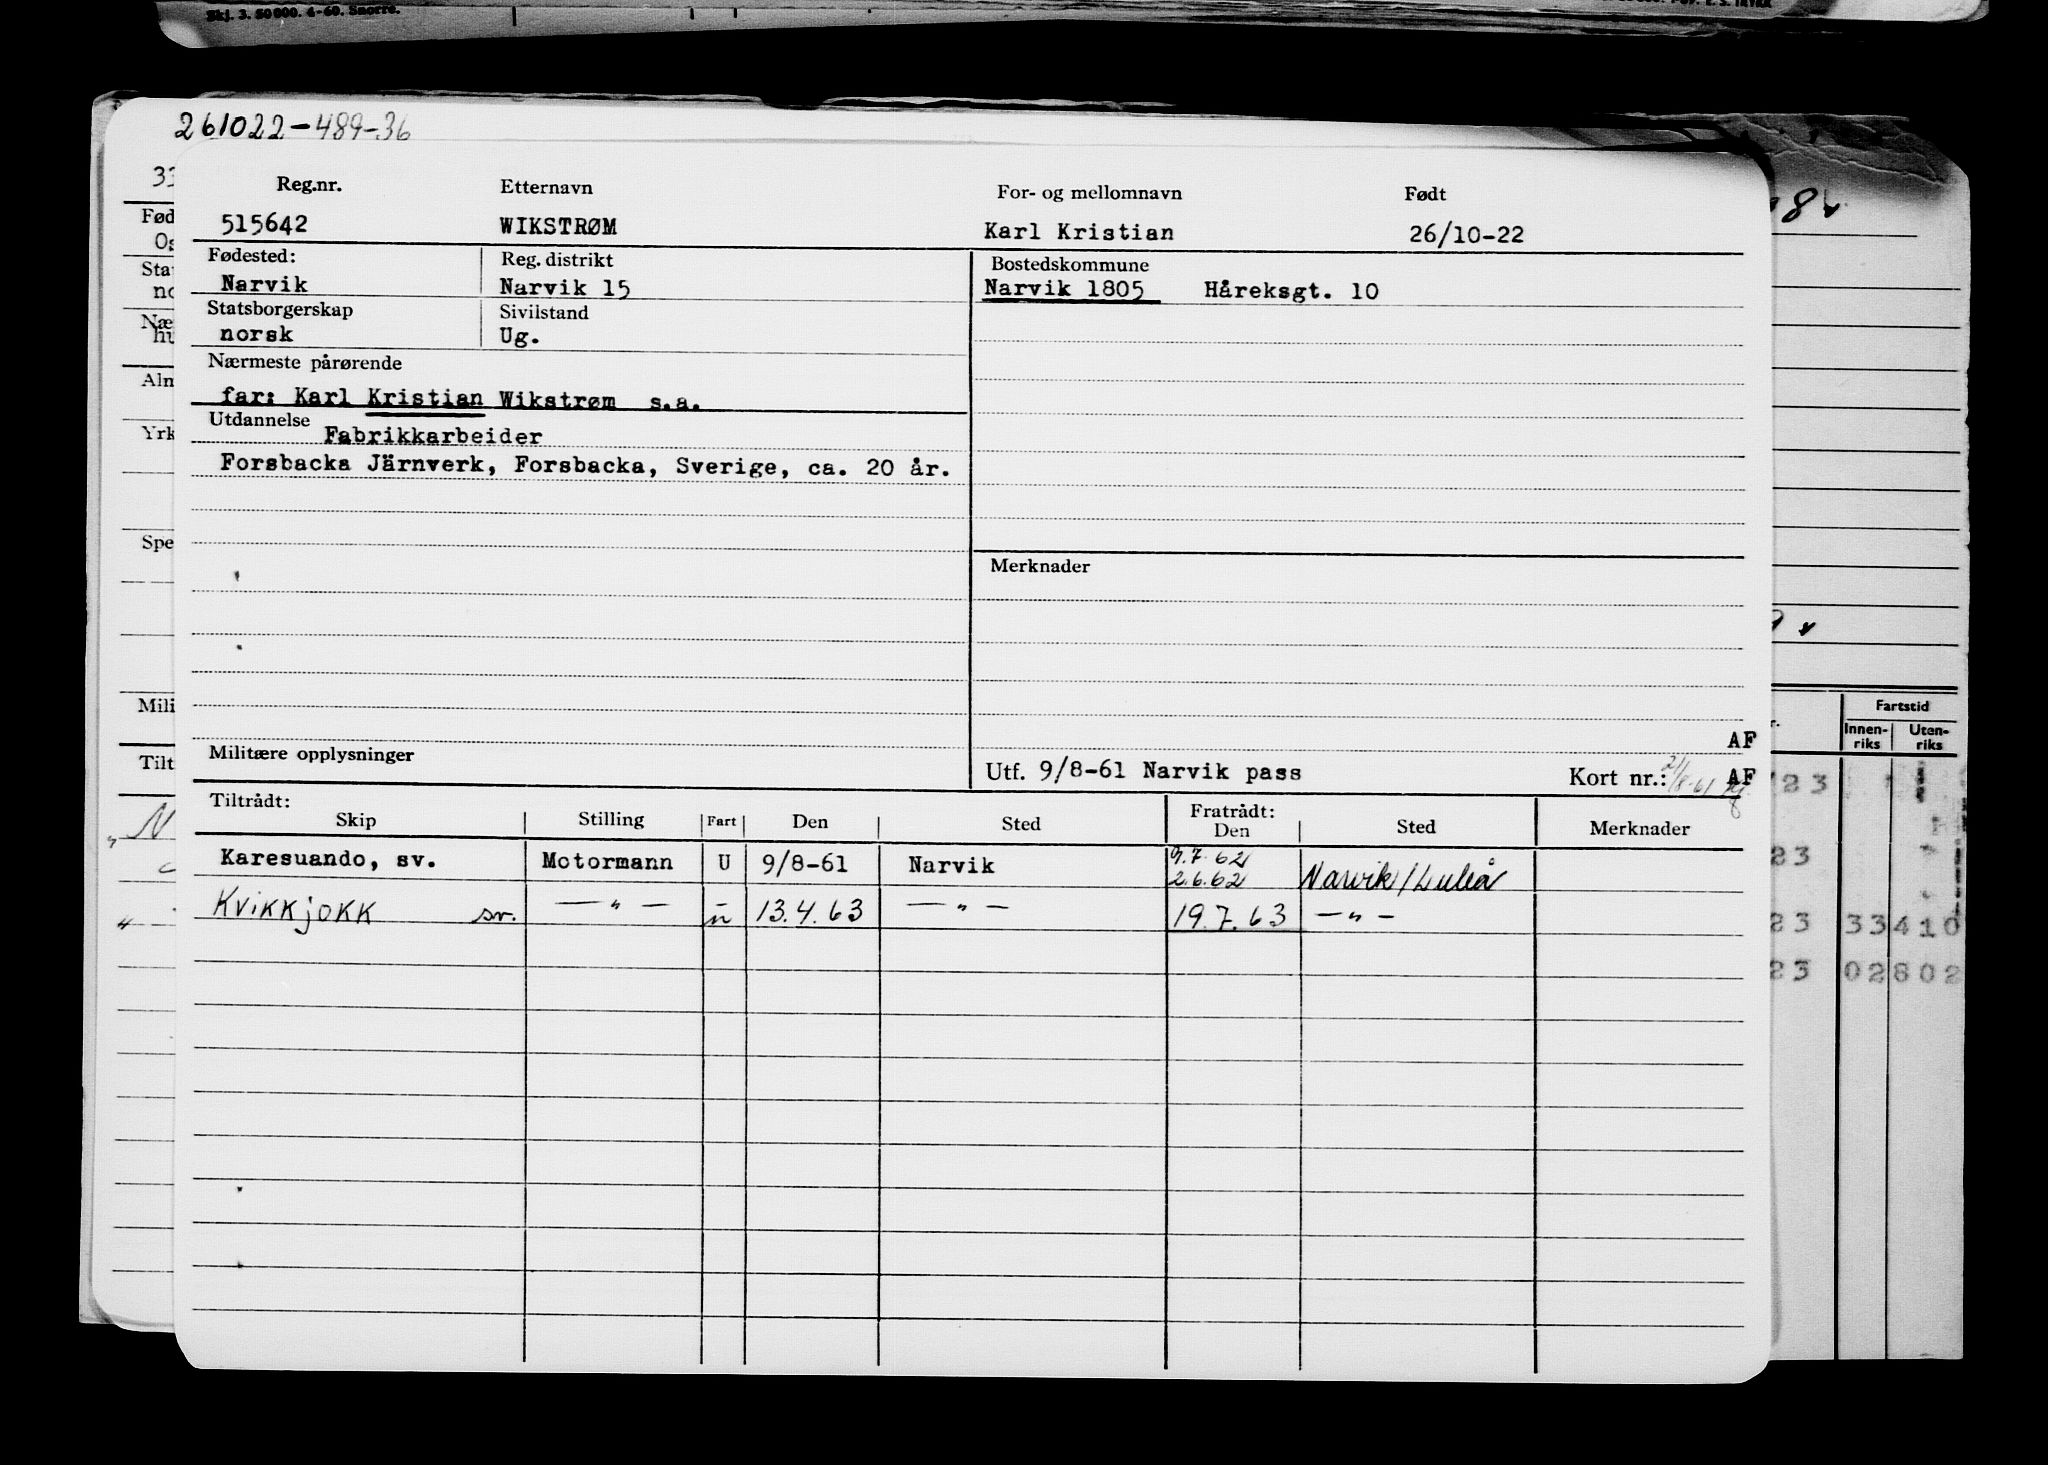 Skj. 3. 50 000. 4-60. Snorre.
261022-489-36
Reg.nr. Etternavn For- og mellomnavn Født
515642 WIKSTRØM Karl Kristian 26/10-22
Fødested: Reg. distrikt Bostedskommune
Narvik Narvik 15 Narvik 1805 Håreksgt. 10
Statsborgerskap Sivilstand
norsk Ug.
Nærmeste pårørende
far: Karl Kristian Wikstrøm s.a.
Utdannelse
Fabrikkarbeider
Forsbacka Järnverk, Forsbacka, Sverige, ca. 20 år.
Merknader
AF
Militære opplysninger
Utf. 9/8-61 Narvik pass Kort nr.: 21/8-61 AF
Tiltrådt: Fratrådt:
Skip Stilling Fart Den Sted Den Sted Merknader
Karesuando, sv. Motormann U 9/8-61 Narvik 9.7.62 Narvik/Luleå
2.6.62
Kvikkjokk sv. —"— u 13.4.63 —"— 19.7.63 —"—
33
Fød
Os
Stat
no
Næ
hu
Aln
Yrk
Spe
Mili
Tilt
N
8
Fartstid
Innen-riks Uten-riks
23
23
23 33 410
23 02 802